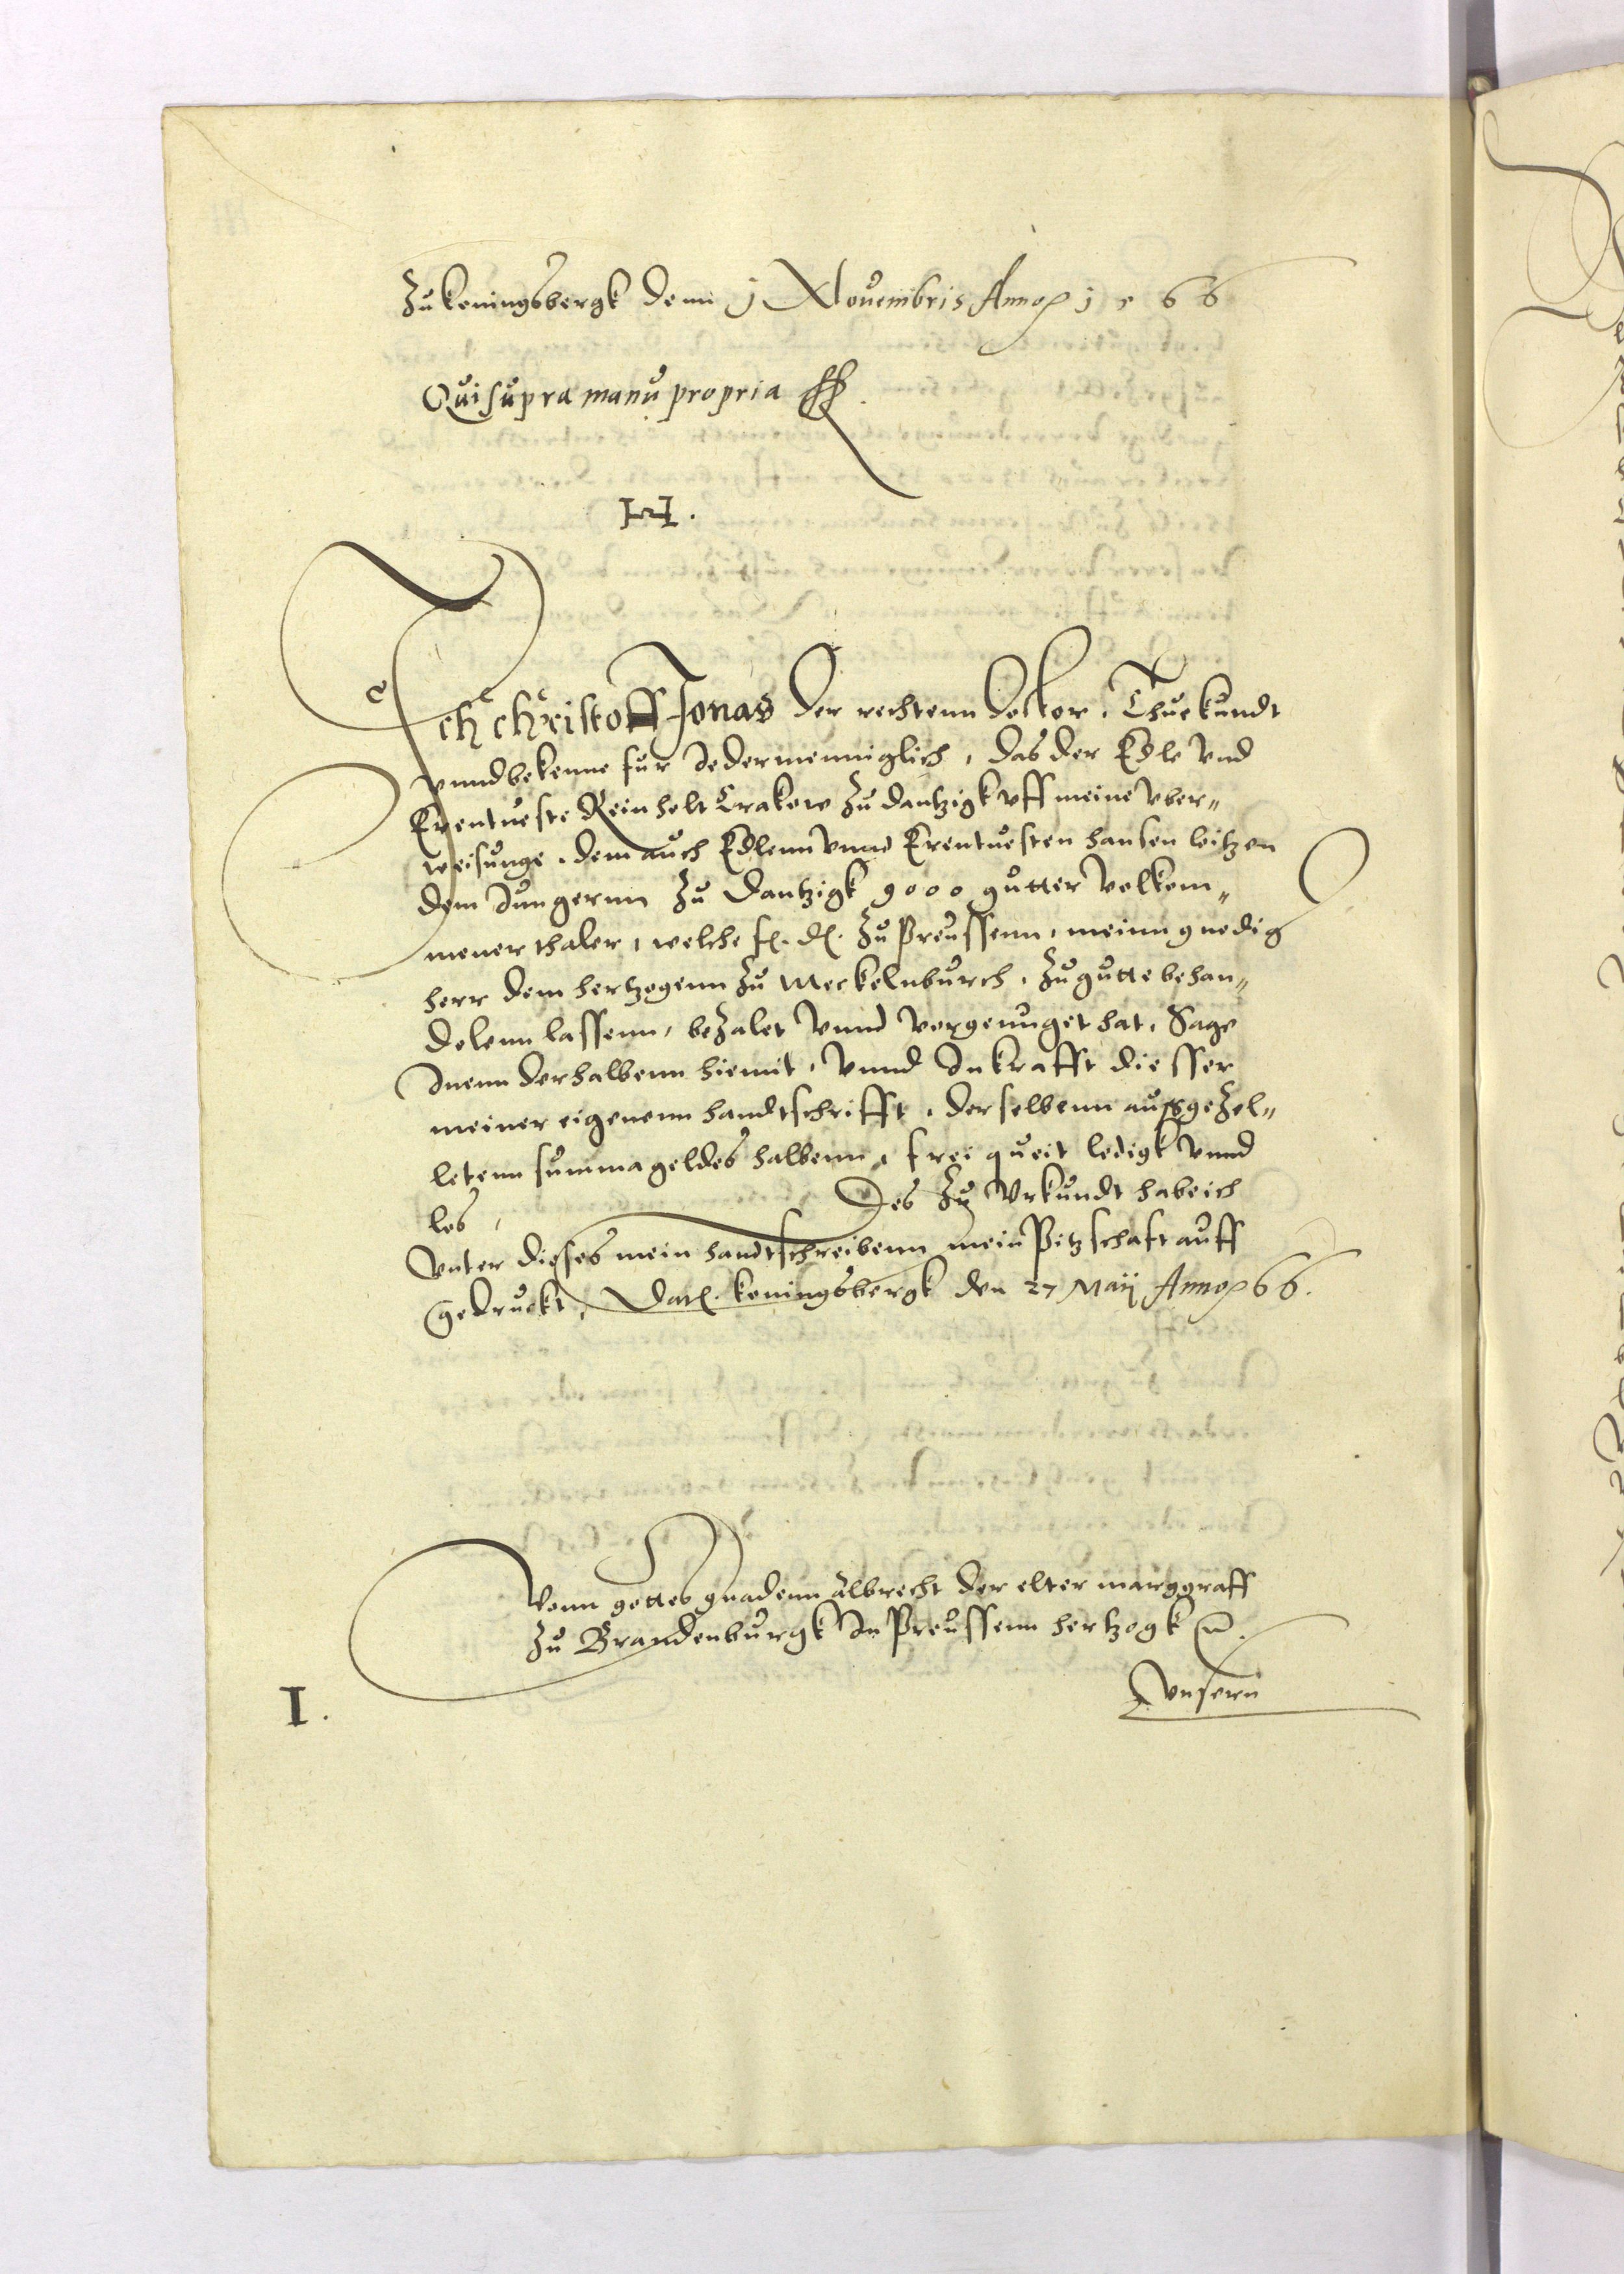 Zu Koningsbergk denn j Nouembris Anno 1566
Qui supra manu propria
H.
Ich Christoff Jonas der rechtenn Doctor, Thue kundt
vnnd bekenne fur Jedermenniglich, das der Edle vnd
Erentueste Reinholt Crakow zu Dantzigk vff meine vber„
weisunge, dem auch Edlenn vnnd Erentuesten Hansen
dem Jungernn zu Dantzigk 9000 gutter volkom„
mener thaler, welche f. d. zu Preussenn, meinn gnedig
herr dem hertzogenn zu Meckelnburch, zu gutte behan„
delenn lassenn, bezalet vnnd vergenuget hat, Sage
Inenn derhalbenn hiemit, vnnd In krafft diesser
meiner eigenenn handtschrifft, derselbenn aussgezel„
letenn summa geldes halbenn, frei queit ledigk vnnd
los, Des zu Vrkundt habe ich
vnter dieses mein handtschreibenn mein Pitzschaft auff
gedruckt, Dat. Koningsbergk den 27 Maij Anno 66.
Vonn gottes gnadenn Albrecht der elter marggraff
zu Brandenburgk In Preussenn hertzogk
I. Vnsern